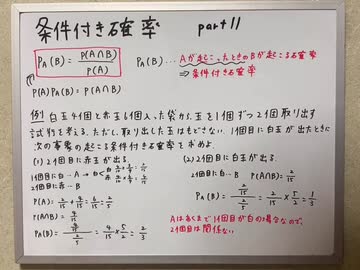 条件付き確率 part 11
P_A(B) = P(A∩B)/P(A)
P_A(B)… Aが起こったときのBが起こる確率
⇒条件付き確率
P(A)P_A(B) = P(A∩B)
例) 白玉4個と赤玉6個入った袋から、玉を1個ずつ2個取り出す
試行を考える。ただし、取り出した玉はもどさない。1個目に白玉が出たときに
次の事象の起こる条件付き確率を求めよ。
(1) 2個目に赤玉が出る。
1個目に白…A
2個目に赤…B
P(A) = 2/15 + 4/15 = 6/15 = 2/5
P(A∩B) = 4/15
P_A(B) = (4/15)/(2/5) = 4/15 × 5/2 = 2/3
(2) 2個目に白玉が出る。
2個目に白…B P(A∩B) = 2/15
P_A(B) = (2/15)/(2/5) = 2/15 × 5/2 = 1/3
Aはあくまで1個目が白の場合なので、
2個目は関係ない